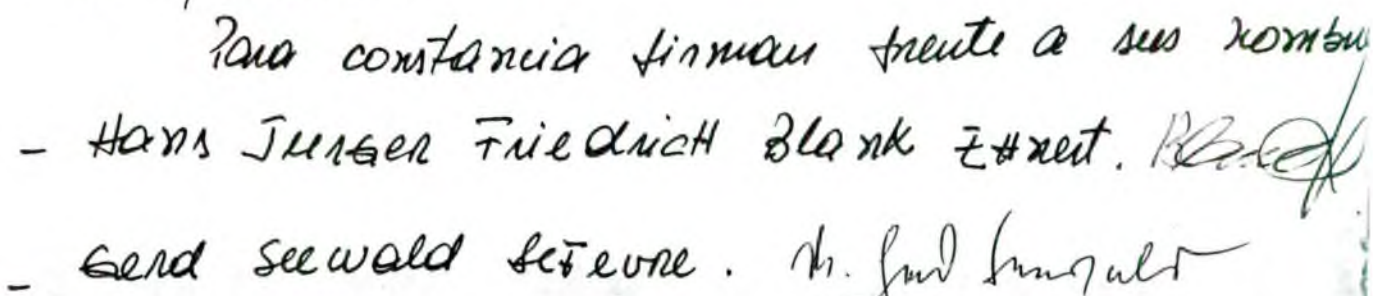 Para constancia firman frente a sus nombre
- Hans Jurgen Friedrich Blank Ehnert.
- Gerd Seewald Lefevre.